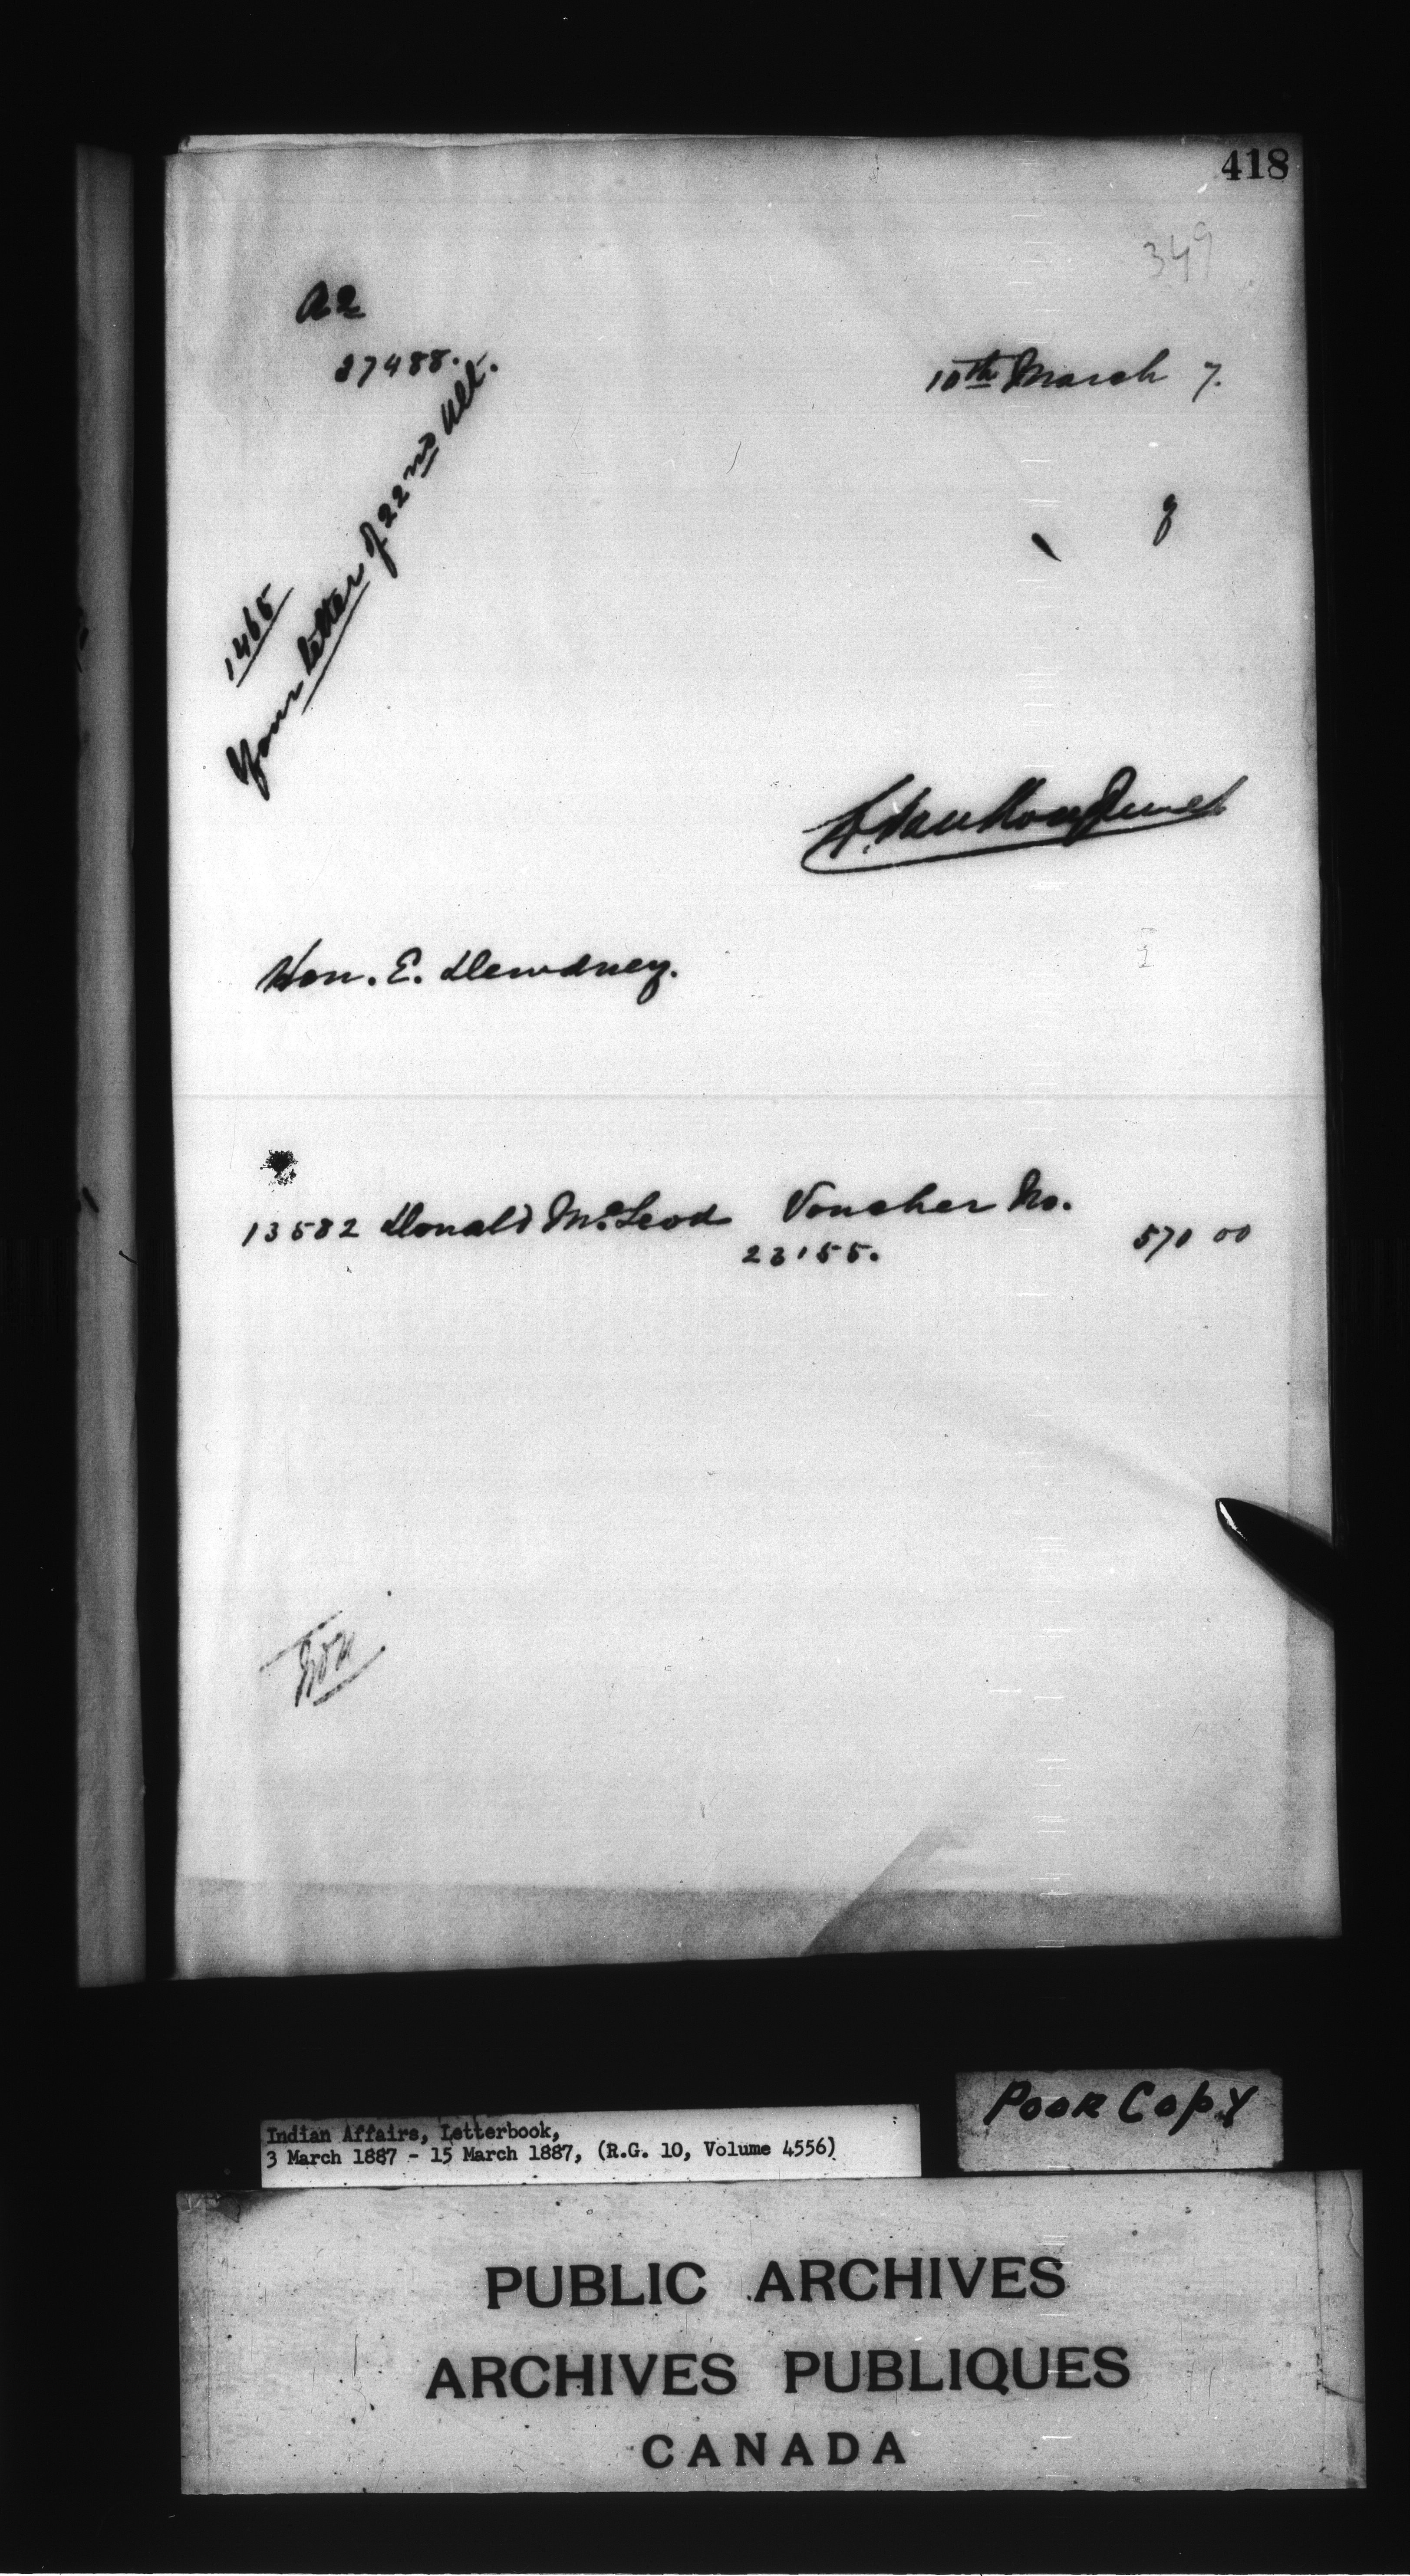 418
349
A 2
37488.
10th March 7.
1465
Your letter of 22nd Ult.
L. VanKoughnet
Hon. E. Dewdney.
13582 Donald McLeod Voucher No.
23155. 570 00
Poor Copy
Indian Affairs, Letterbook,
3 March 1887 - 15 March 1887, (R.G. 10, Volume 4556)
PUBLIC ARCHIVES
ARCHIVES PUBLIQUES
CANADA